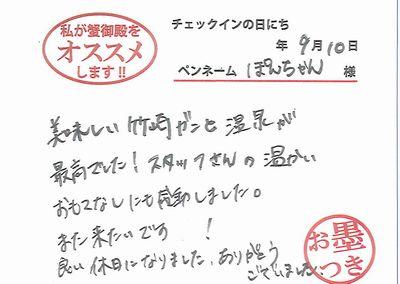 私が蟹御殿を
オススメ
します!!
チェックインの日にち
年 9月10日
ペンネーム ぽんちゃん 様
美味しい竹崎ガニと温泉が
最高でした!スタッフさんの温かい
おもてなしにも感動しました。
また来たいです !
良い休日になりました、ありがとう
ございました。
お墨
つき